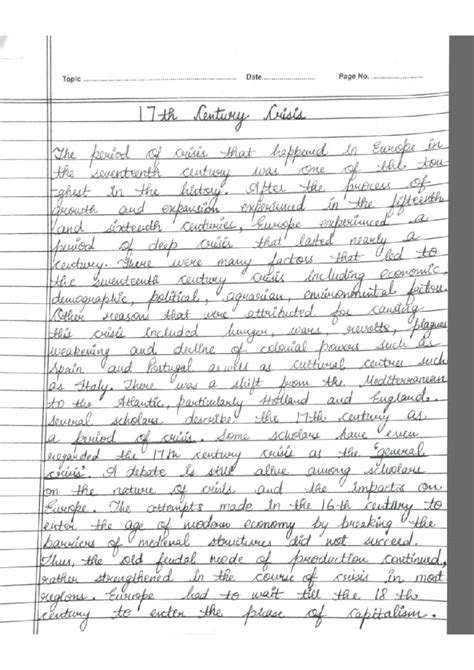 Topic ........................ Date................ Page No. ................
17th Century Crisis
The period of crisis that happened in Europe in
the seventeenth century was one of the tou-
ghest in the history. After the process of
growth and expansion experienced in the fifteenth
and sixteenth centuries, Europe experienced a
period of deep crisis that lasted nearly a
century. There were many factors that led to
the seventeenth century crisis including economic,
demographic, political, agrarian, environmental factors.
Other reasons that were attributed for causing
this crisis included hunger, wars, revolts, plagues
weakening and decline of colonial powers such as
Spain and Portugal as well as cultural centres such
as Italy. There was a shift from the Mediterranean
to the Atlantic, particularly Holland and England.
Several scholars describe the 17th century as
a period of crisis. Some scholars have even
regarded the 17th century crisis as the 'general
crisis'. A debate is still alive among scholars
on the nature of crisis and the impacts on
Europe. The attempts made in the 16th century to
enter the age of modern economy by breaking the
barriers of medieval structures did not succeed.
Thus, the old feudal mode of production continued,
rather strengthened in the course of crisis in most
regions. Europe had to wait till the 18th
century to enter the phase of capitalism.